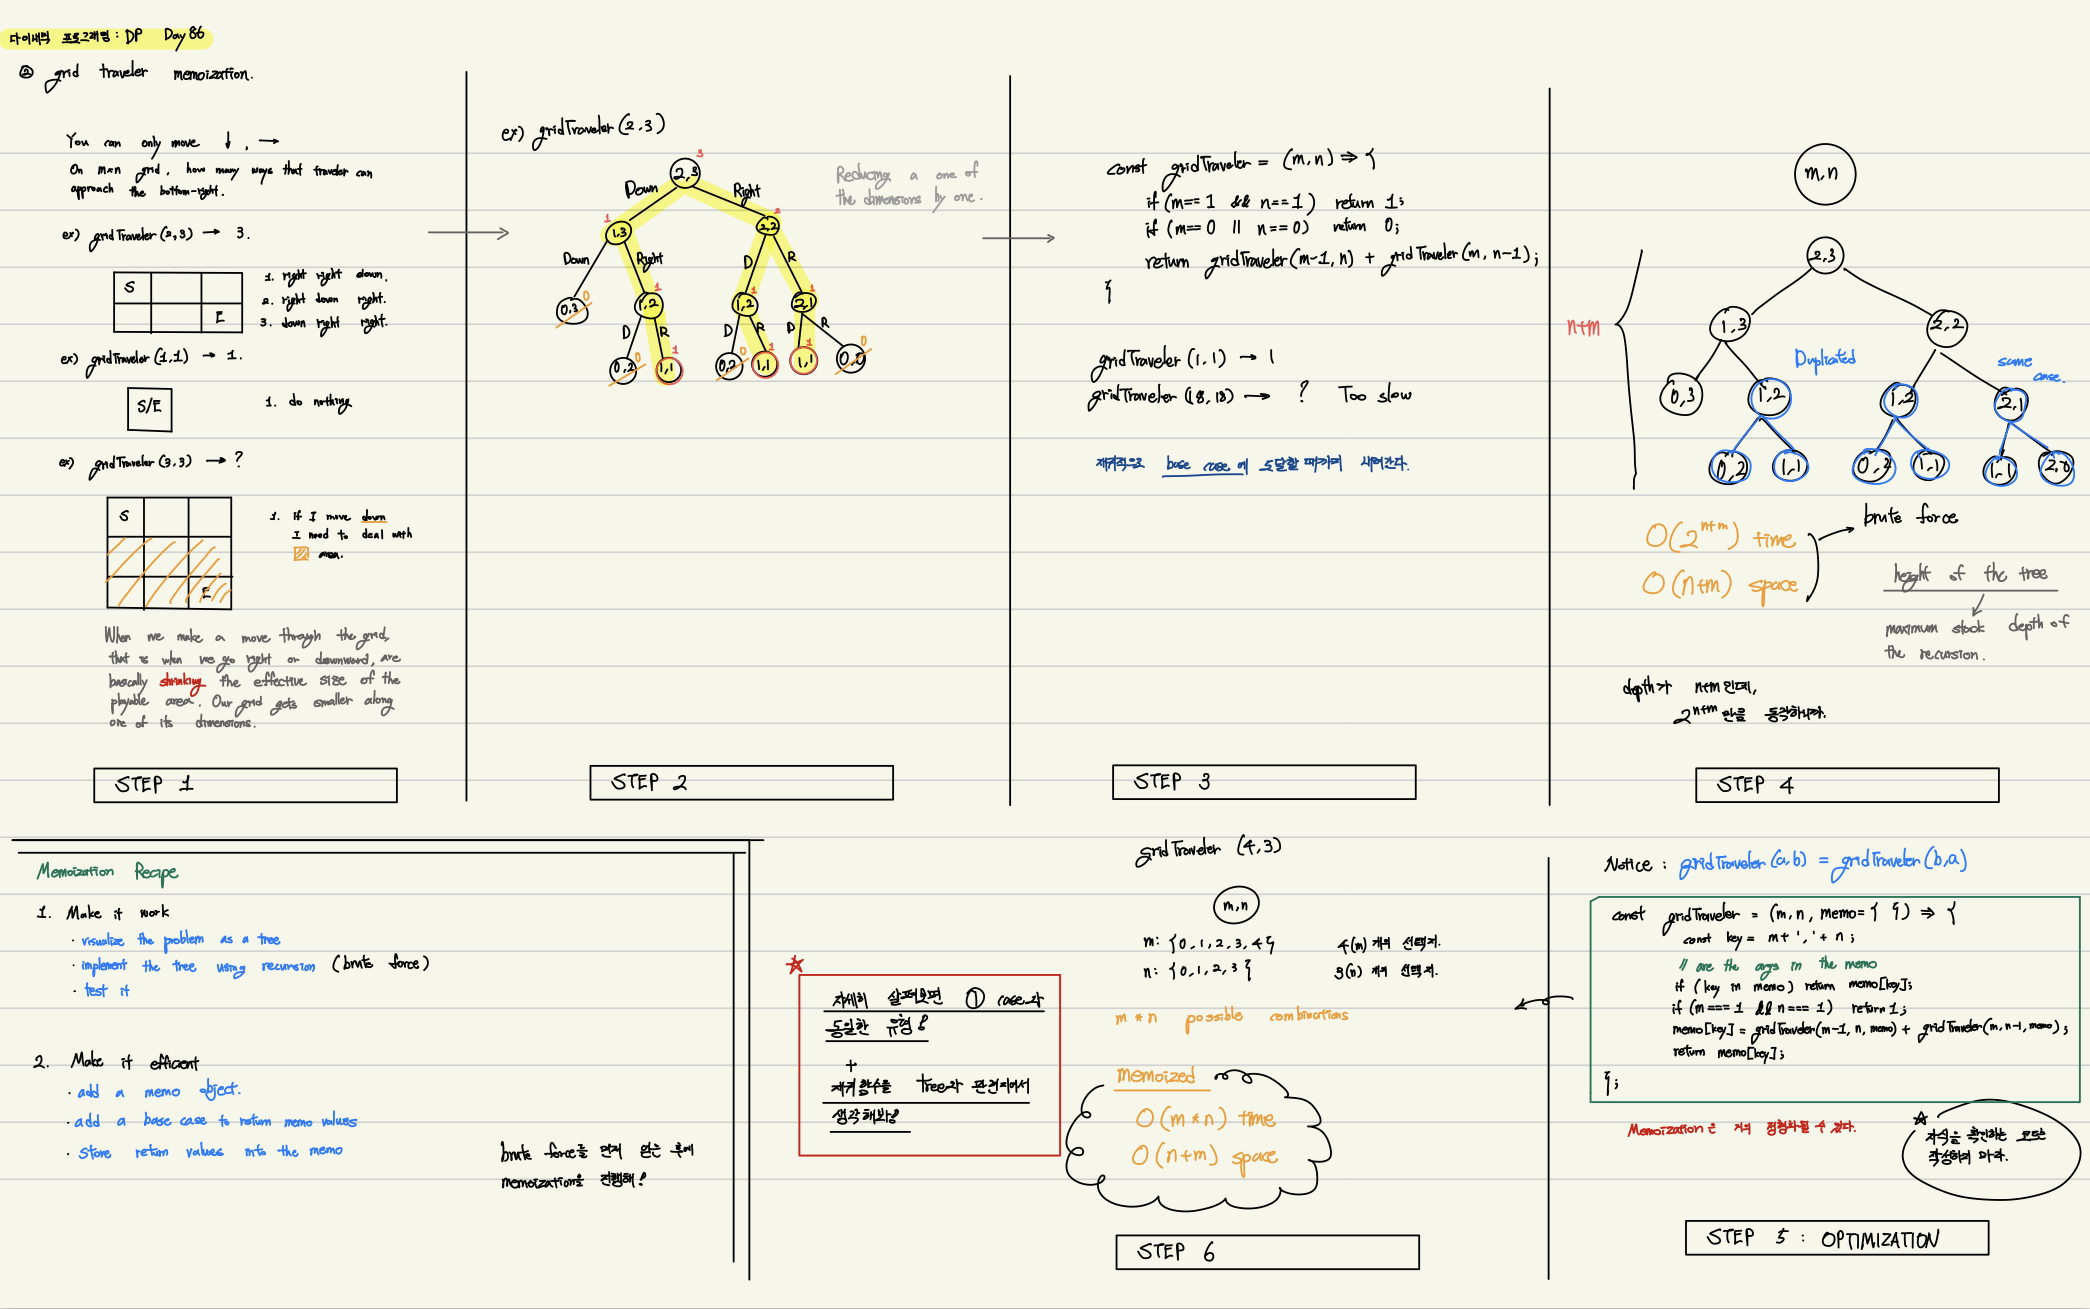 다이내믹 프로그래밍 : DP Day 86
② grid traveler memoization.
You can only move ↓ , →
On m×n grid, how many ways that traveler can
approach the bottom-right.
ex) gridTraveler(2,3) → 3.
S
E
1. right right down.
2. right down right.
3. down right right.
ex) gridTraveler(1,1) → 1.
S/E
1. do nothing
ex) gridTraveler(3,3) → ?
S
E
1. if I move down
I need to deal with
area.
When we make a move through the grid,
that is when we go right or downward, are
basically shrinking the effective size of the
playable area. Our grid gets smaller along
one of its dimensions.
STEP 1
ex) gridTraveler(2,3)
Reducing a one of
the dimensions by one.
3
2,3
Down Right
1 2
1,3 2,2
Down Right D R
0 1 1 1
0,3 1,2 1,2 2,1
D R D R D R
0 1 0 1 1 0
0,2 1,1 0,2 1,1 1,1 0,2
STEP 2
const gridTraveler = (m,n) => {
if (m== 1 && n==1) return 1;
if (m== 0 || n==0) return 0;
return gridTraveler(m-1,n) + gridTraveler(m, n-1);
}
gridTraveler(1,1) → 1
gridTraveler(18,18) → ? Too slow
재귀적으로 base case에 도달할 때까지 내려간다.
STEP 3
m,n
2,3
n+m
1,3 2,2
Duplicated same
case.
0,3 1,2 1,2 2,1
0,2 1,1 0,2 1,1 1,1 2,0
O(2ⁿ⁺ᵐ) time
brute force
O(n+m) space
height of the tree
maximum stack depth of
the recursion.
depth가 n+m 인데,
2ⁿ⁺ᵐ 만큼 동작하니까.
STEP 4
Memoization Recipe
1. Make it work
· visualize the problem as a tree
· implement the tree using recursion (brute force)
· test it
2. Make it efficent
· add a memo object.
· add a base case to return memo values
· store return values into the memo
brute force를 먼저 얻은 후에
memoization을 진행해!
gridTraveler (4,3)
m,n
m: {0,1,2,3,4} 4(m) 개의 선택지.
n: {0,1,2,3} 3(n) 개의 선택지.
m * n possible combinations
자세히 살펴보면 ① case와
동일한 유형!
+
재귀함수를 Tree와 관련지어서
생각해봐!
Memoized
O(m*n) time
O(n+m) space
STEP 6
Notice : gridTraveler(a,b) = gridTraveler(b,a)
const gridTraveler = (m,n, memo={ }) => {
const key = m + ',' + n ;
// are the args in the memo
if (key in memo) return memo[key];
if (m === 1 && n === 1) return 1;
memo[key] = gridTraveler(m-1, n, memo) + gridTraveler(m, n-1, memo);
return memo[key];
};
Memoization은 거의 정형화될 수 있다.
자식을 확인하는 코드는
작성하지 마라.
STEP 5 : OPTIMIZATION